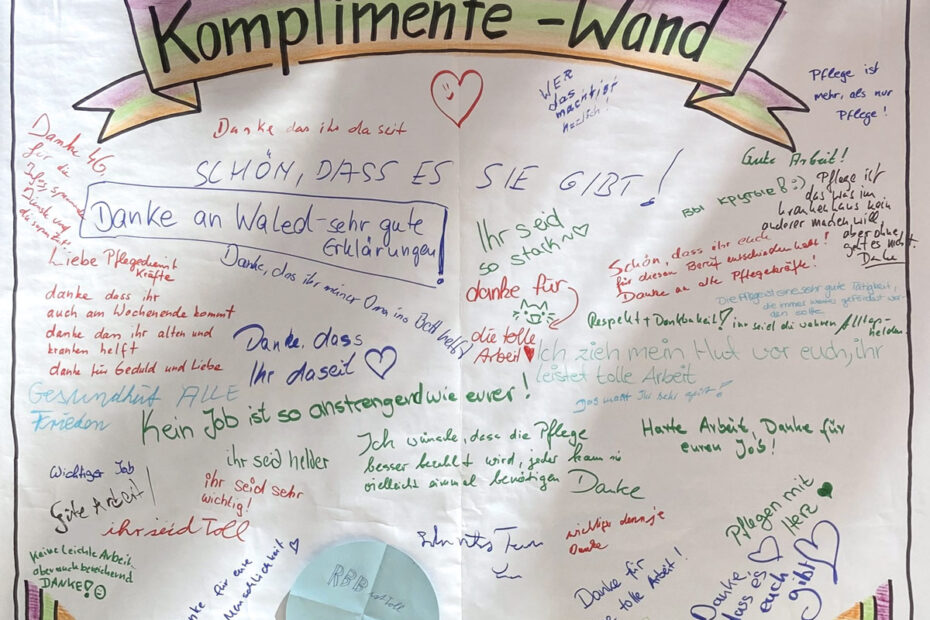 Komplimente-Wand
Pflege ist
mehr, als nur
Pflege!
WER
das macht ihr
herlich!
Danke das ihr da seit
Danke 4G,
für die
SCHÖN, DASS ES SIE GIBT!
Gute Arbeit!
ВЫ КРУТЫЕ! :)
Pflege ist
das was im
krankenhaus kein
anderer machen will
aber ohne
geht es nicht.
Danke
Danke an Waled-sehr gute
Erklärungen!
Ihr seid
so stark~♡
Schön, dass ihr euch
für diesen Beruf entschieden habt!
Danke an alle Pflegekräfte!
Liebe Pflegedienst
kräfte
Danke, das ihr meiner Oma ins Bett helft
danke dass ihr
auch am Wochenende kommt
danke dass ihr alten und
kranken helft
danke für Geduld und Liebe
danke für
die tolle
Arbeit
Die Pflege ist eine sehr gute Tätigkeit,
die immer wieder gefördert wer-
den sollte
Respekt + Dankbarkeit! ihr seid die wahren Alltags-
helden.
Danke, dass
Ihr da seit ♡
Ich zieh mein Hut vor euch, ihr
leistet tolle Arbeit
Gesundheit ALLE
Frieden
Kein Job ist so anstrengend wie eurer!
Das macht Ihr sehr gut!
Harte Arbeit, Danke für
euren Job!
Ich wünsche, dass die Pflege
besser bezahlt wird, jeder kann sie
vielleicht einmal benötigen
Danke
Wichtiger Job
ihr seid helder
Gute Arbeit!
ihr seid sehr
wichtig!
ihr seid Toll
wichtiger denn je
Danke
Pflegen mit
Herz
Keine leichte Arbeit
aber auch bereichernd
DANKE!
für eure
Menschlichkeit ♡
RBB ist Toll
Danke für
tolle Arbeit!
Danke
dass es
euch
gibt ♡